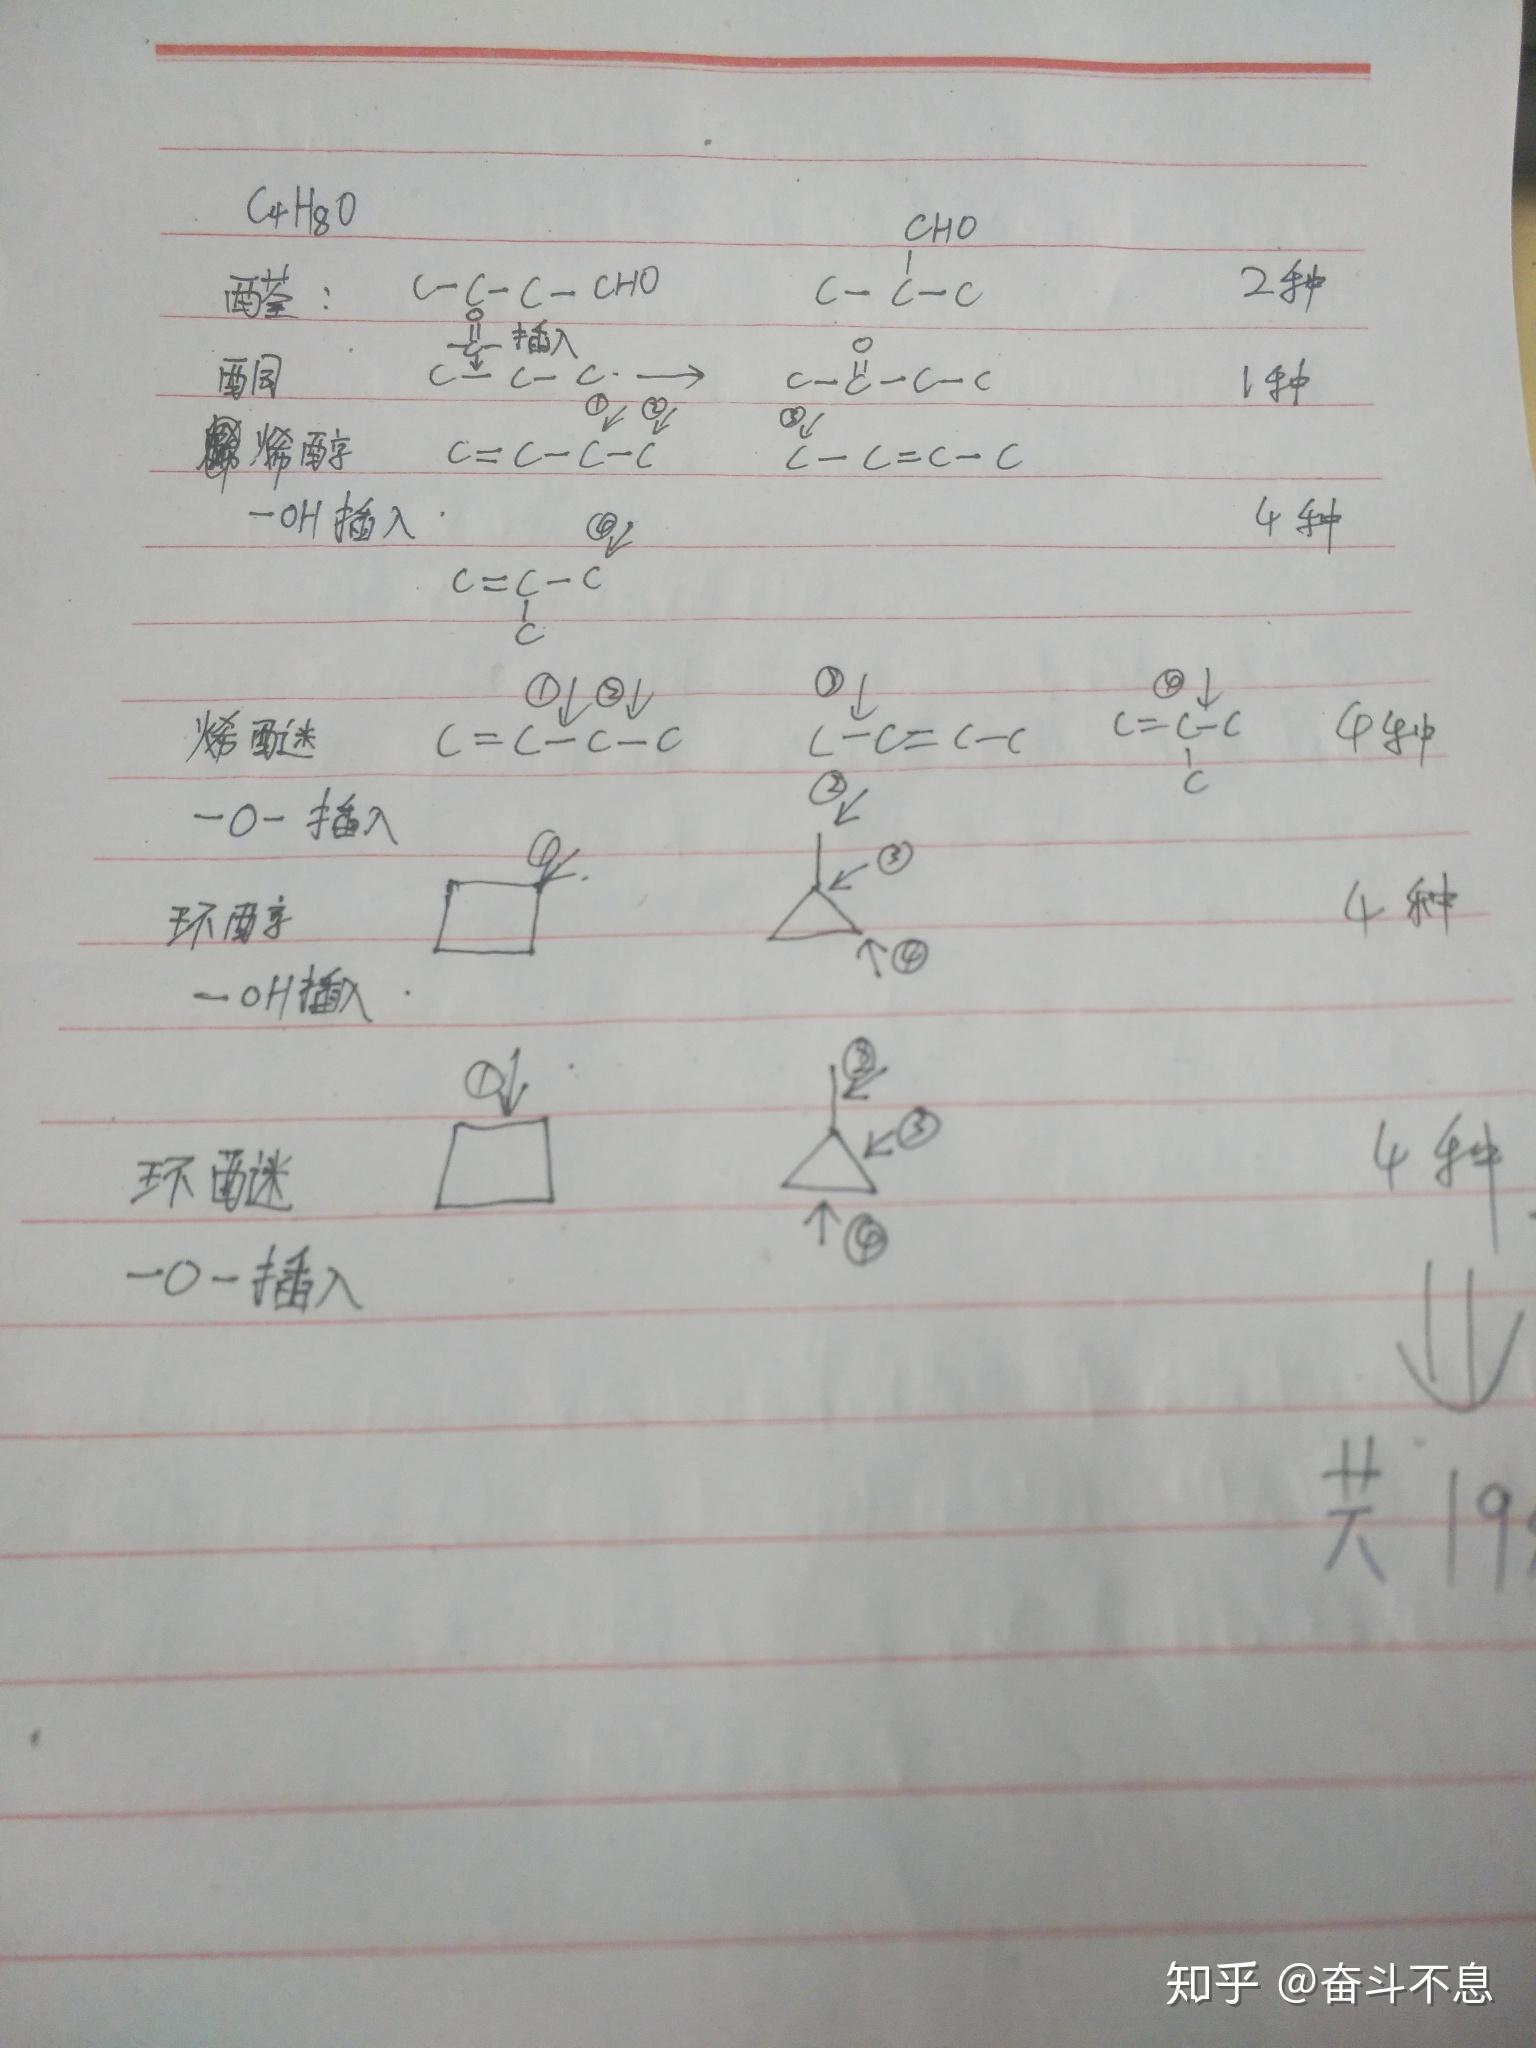 C4H8O
CHO
醛: C-C-C-CHO C-C-C 2种
O
-C- 插入 O
酮 C-C-C → C-C-C-C 1种
① ② ③
烯醇 C=C-C-C C-C=C-C
-OH插入 4种
④
C=C-C
C
① ② ③ ④
烯醚 C=C-C-C C-C=C-C C=C-C 4种
C
-O-插入 ②
① ③
环醇 4种
-OH插入 ④
① ②
③
环醚 4种
④
-O-插入
共19
知乎 @奋斗不息